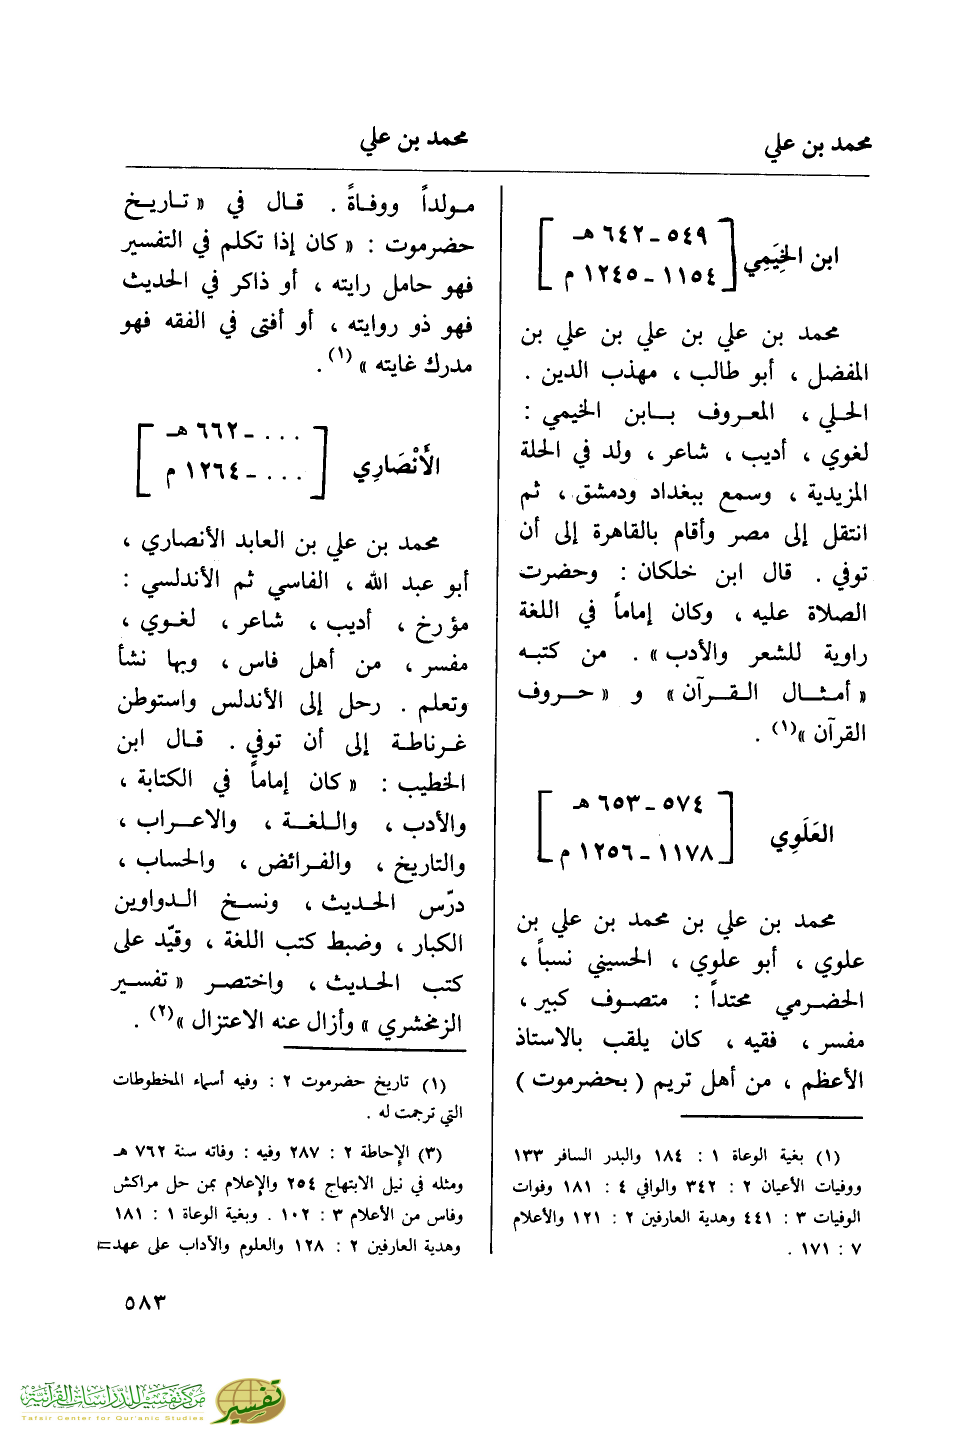 محمد بن علي
محمد بن علي
ابن الخِيَمِي
[ ٥٤٩ - ٦٤٢ هـ
١١٥٤ - ١٢٤٥ م ]
محمد بن علي بن علي بن علي بن
المفضل ، أبو طالب ، مهذب الدين .
الحلي ، المعروف بابن الخيمي :
لغوي ، أديب ، شاعر ، ولد في الحلة
المزيدية ، وسمع ببغداد ودمشق ، ثم
انتقل إلى مصر وأقام بالقاهرة إلى أن
توفي . قال ابن خلكان : وحضرت
الصلاة عليه ، وكان إماماً في اللغة
راوية للشعر والأدب » . من كتبه
« أمثال القرآن » و « حروف
القرآن »(١) .
العَلَوِي
[ ٥٧٤ - ٦٥٣ هـ
١١٧٨ - ١٢٥٦ م ]
محمد بن علي بن محمد بن علي بن
علوي ، أبو علوي ، الحسيني نسباً ،
الحضرمي محتداً : متصوف كبير ،
مفسر ، فقيه ، كان يلقب بالاستاذ
الأعظم ، من أهل تريم ( بحضرموت )
(١) بغية الوعاة ١ : ١٨٤ والبدر السافر ١٣٣
ووفيات الأعيان ٢ : ٣٤٢ والوافي ٤ : ١٨١ وفوات
الوفيات ٣ : ٤٤١ وهدية العارفين ٢ : ١٢١ والأعلام
٧ : ١٧١ .
مولداً ووفاةً . قال في « تاريخ
حضرموت : « كان إذا تكلم في التفسير
فهو حامل رايته ، أو ذاكر في الحديث
فهو ذو روايته ، أو أفتى في الفقه فهو
مدرك غايته »(١) .
الأَنْصَارِي
[ ... - ٦٦٢ هـ
... - ١٢٦٤ م ]
محمد بن علي بن العابد الأنصاري ،
أبو عبد الله ، الفاسي ثم الأندلسي :
مؤرخ ، أديب ، شاعر ، لغوي ،
مفسر ، من أهل فاس ، وبها نشأ
وتعلم . رحل إلى الأندلس واستوطن
غرناطة إلى أن توفي . قال ابن
الخطيب : « كان إماماً في الكتابة ،
والأدب ، واللغة ، والاعراب ،
والتاريخ ، والفرائض ، والحساب ،
درّس الحديث ، ونسخ الدواوين
الكبار ، وضبط كتب اللغة ، وقيّد على
كتب الحديث ، واختصر « تفسير
الزمخشري » وأزال عنه الاعتزال »(٢) .
(١) تاريخ حضرموت ٢ : وفيه أسماء المخطوطات
التي ترجمت له .
(٣) الإحاطة ٢ : ٢٨٧ وفيه : وفاته سنة ٧٦٢ هـ
ومثله في نيل الابتهاج ٢٥٤ والإعلام بمن حل مراكش
وفاس من الأعلام ٣ : ١٠٢ . وبغية الوعاة ١ : ١٨١
وهدية العارفين ٢ : ١٢٨ والعلوم والآداب على عهد=
٥٨٣
مركز تفسير للدراسات القرآنية
Tafsir Center for Qur'anic Studies
تفسير